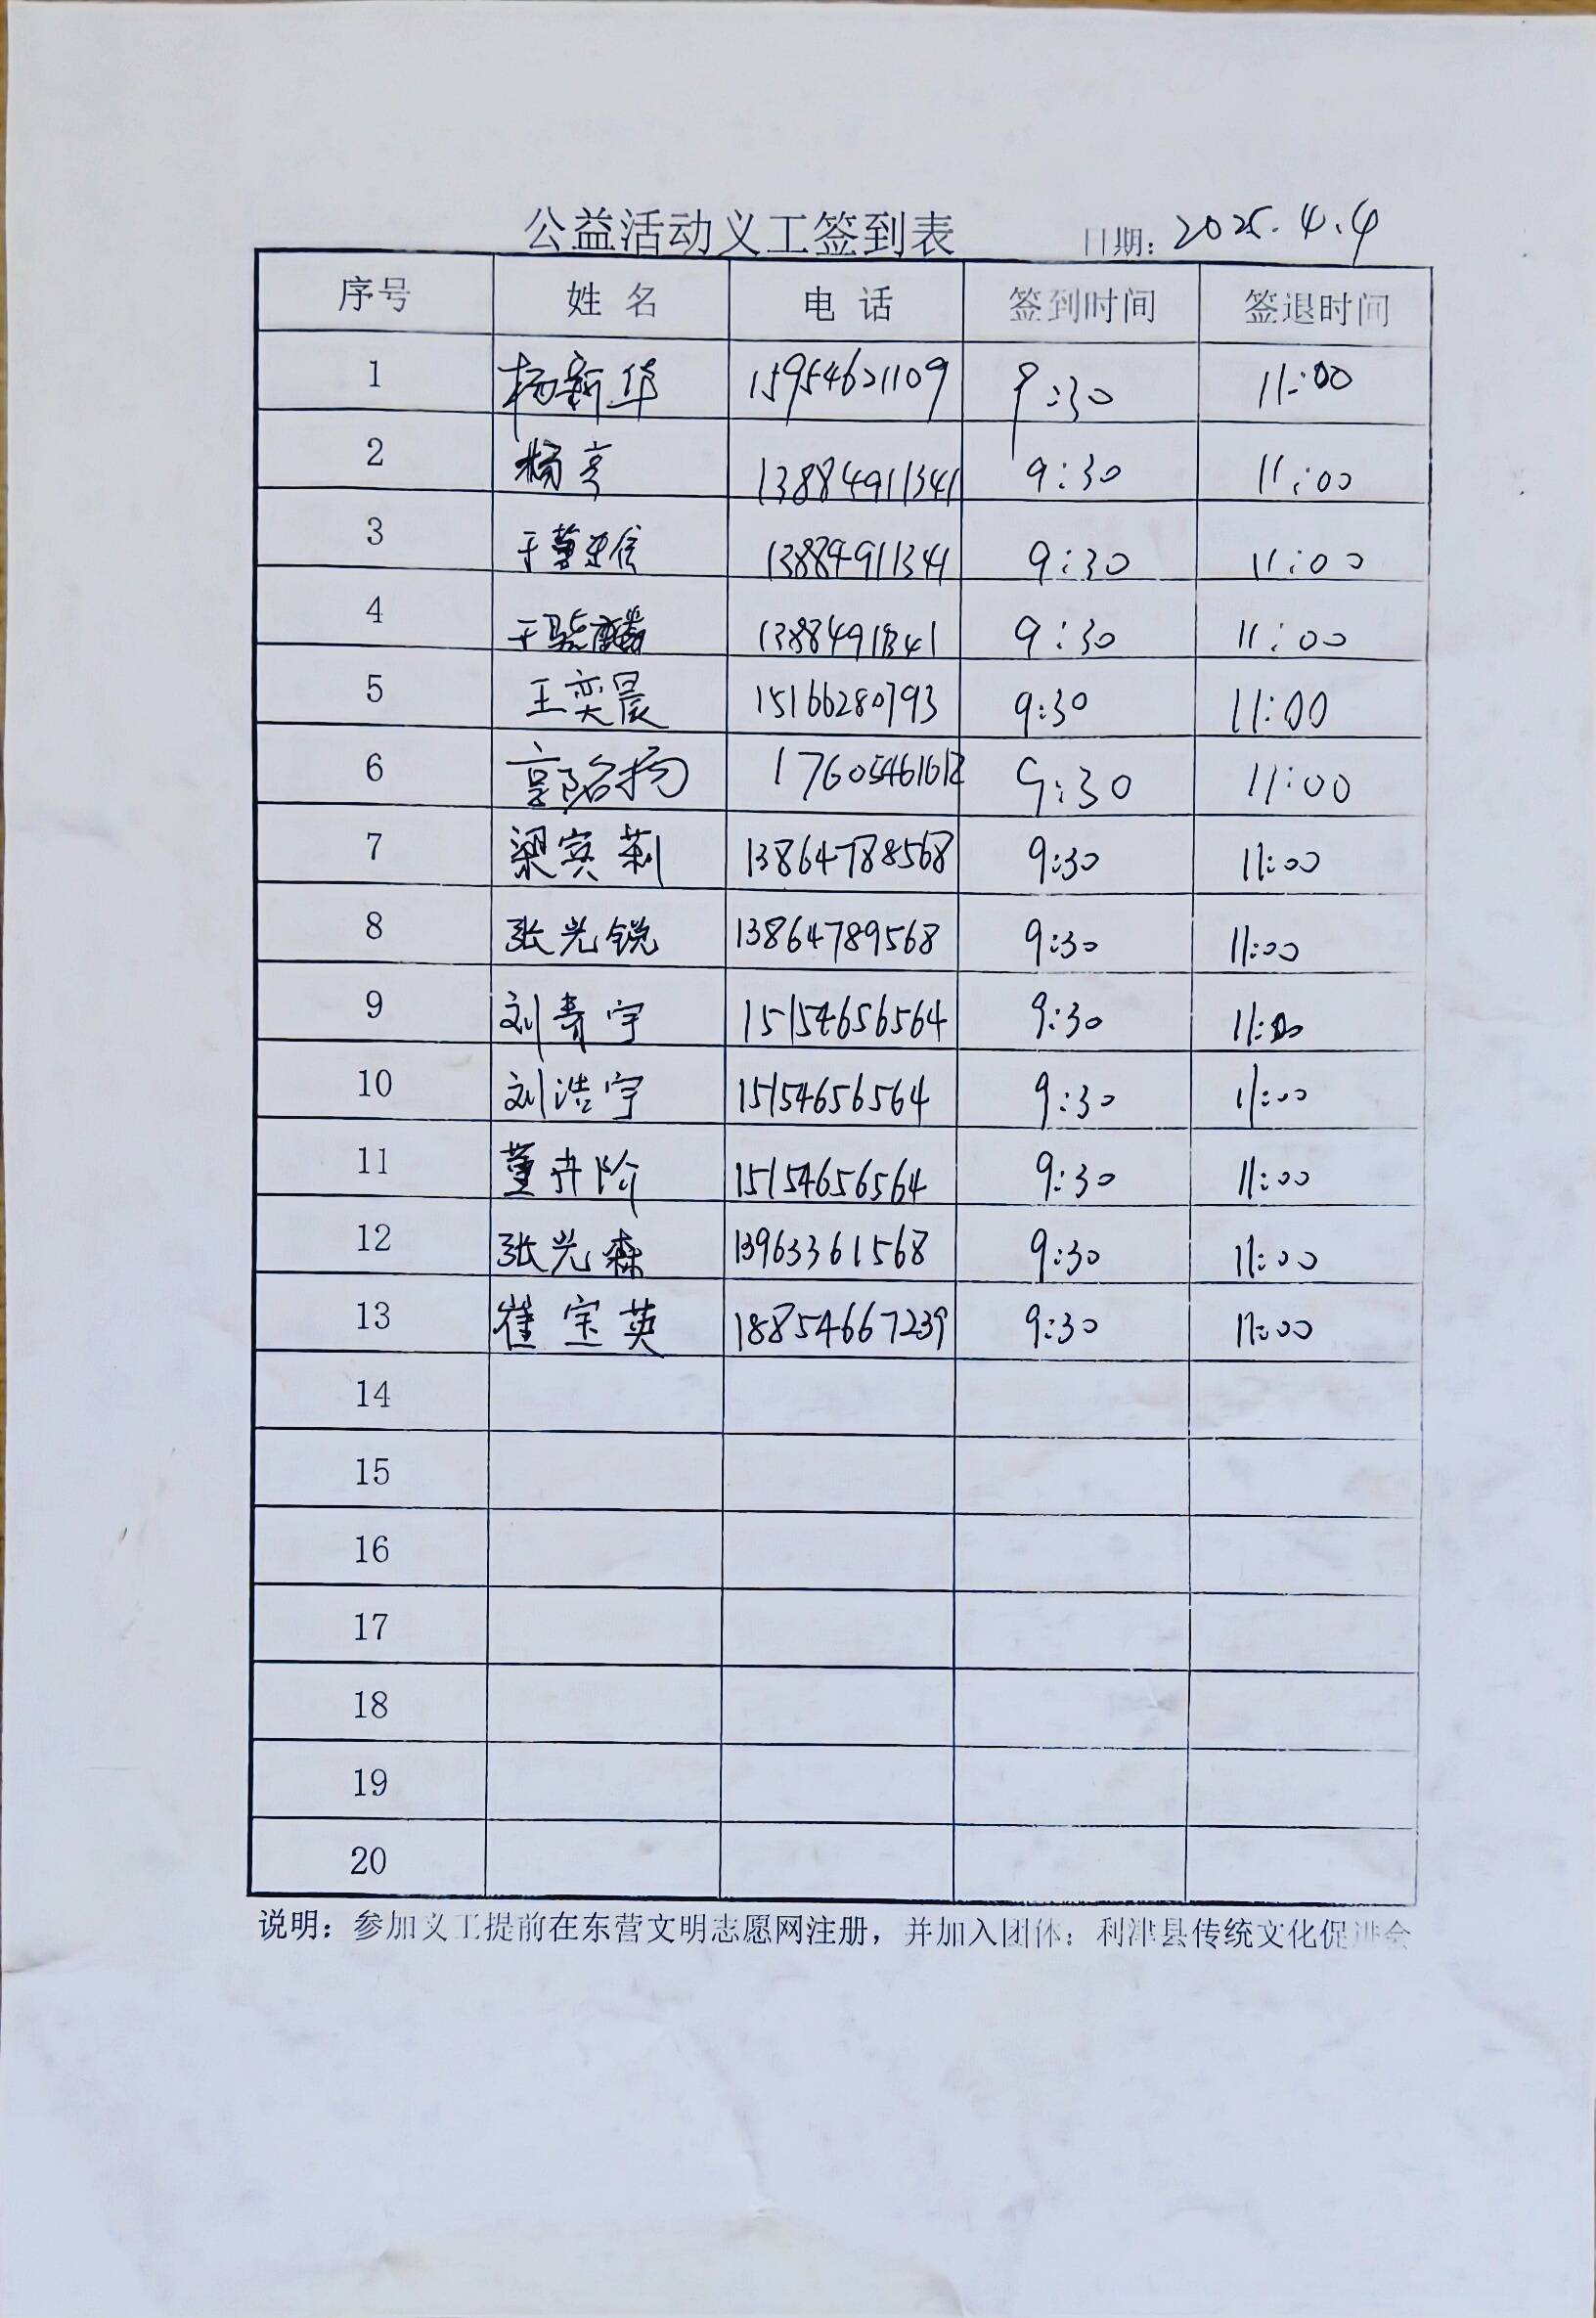 公益活动义工签到表 日期: 2025.4.4
序号 姓名 电话 签到时间 签退时间
1 杨新华 15954621109 9:30 11:00
2 杨亭 13884911341 9:30 11:00
3 于董 13884911341 9:30 11:00
4 于 13884911341 9:30 11:00
5 王奕晨 15166280793 9:30 11:00
6 郭铭扬 17605461612 9:30 11:00
7 梁宾莉 13864788568 9:30 11:00
8 张光锐 13864789568 9:30 11:00
9 刘青宇 15154656564 9:30 11:00
10 刘浩宇 15154656564 9:30 11:00
11 董卉阶 15154656564 9:30 11:00
12 张光森 13963361568 9:30 11:00
13 崔宝英 18854667239 9:30 11:00
14
15
16
17
18
19
20
说明：参加义工提前在东营文明志愿网注册，并加入团体：利津县传统文化促进会